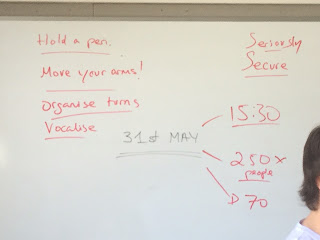 Hold a pen.
Move your arms!
Organise turns
Vocalise
31st MAY
Seriously
Secure
15:30
250x
people
D 70